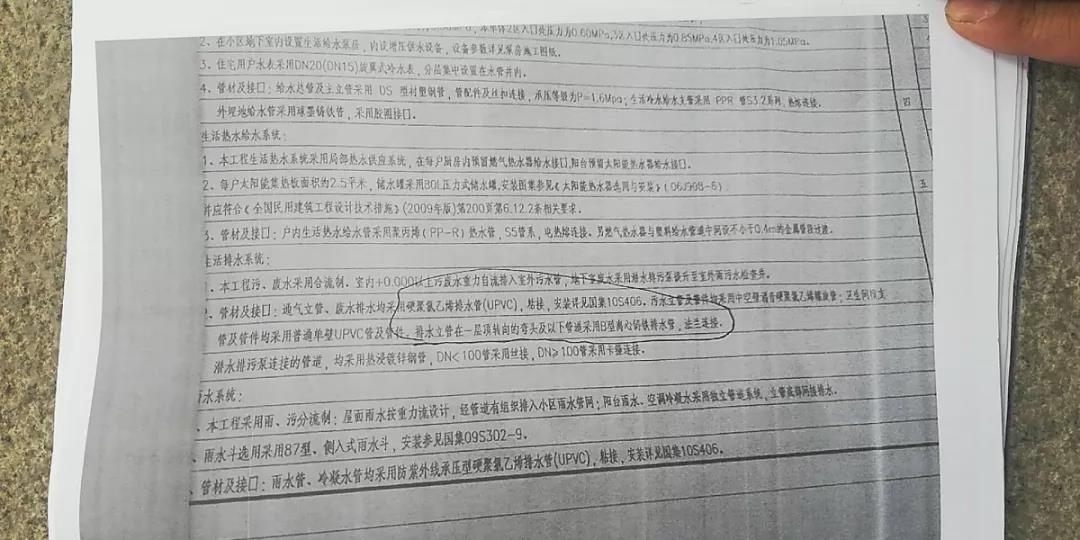 本单体2区入口处压力为0.60MPa,3区入口处压力为0.85MPa,4区入口处压力为1.05MPa。
2、在小区地下室内设置生活给水泵房，内设增压供水设备，设备参数详见泵房施工图纸。
3、住宅用户水表采用DN20(DN15)旋翼式冷水表，分层集中设置在水管井内。
4、管材及接口：给水总管及主立管采用 DS 型衬塑钢管，管配件及丝扣连接，承压等级为P=1.6Mpa；生活冷水给水支管采用 PPR 管S3.2系列，热熔连接。
外埋地给水管采用球墨铸铁管，采用胶圈接口。
四
生活热水给水系统：
1、本工程生活热水系统采用局部热水供应系统，在每户厨房内预留燃气热水器给水接口,阳台预留太阳能热水器给水接口。
2、每户太阳能集热板面积约2.5平米，储水罐采用80L压力式储水罐,安装图集参见《太阳能热水器选用与安装》(06J908-6)
五
并应符合《全国民用建筑工程设计技术措施》(2009年版)第200页第6.12.2条相关要求。
3、管材及接口：户内生活热水给水管采用聚丙烯(PP-R)热水管，S5管系，电热熔连接。另燃气热水器与塑料给水管道中间设不小于0.4m的金属管段过渡。
生活排水系统：
、本工程污、废水采用合流制，室内+0.000以上污废水重力自流排入室外污水管，地下室废水采用潜水排污泵提升至室外雨污水检查井。
、管材及接口：通气立管、废水排水均采用硬聚氯乙烯排水管(UPVC)，粘接，安装详见国集10S406。污水立管及管件均采用中空壁消音硬聚氯乙烯螺旋管；卫生间横支
管及管件均采用普通单壁UPVC管及管件。排水立管在一层顶转向的弯头及以下管道采用B型离心铸铁排水管，法兰连接。
潜水排污泵连接的管道，均采用热浸镀锌钢管，DN<100管采用丝接，DN≥100管采用卡箍连接。
雨水系统：
、本工程采用雨、污分流制；屋面雨水按重力流设计，经管道有组织排入小区雨水管网；阳台雨水、空调冷凝水采用独立管道系统，立管底部间接排水。
、雨水斗选用采用87型、侧入式雨水斗，安装参见国集09S302-9。
、管材及接口：雨水管、冷凝水管均采用防紫外线承压型硬聚氯乙烯排水管(UPVC)，粘接，安装详见国集10S406。